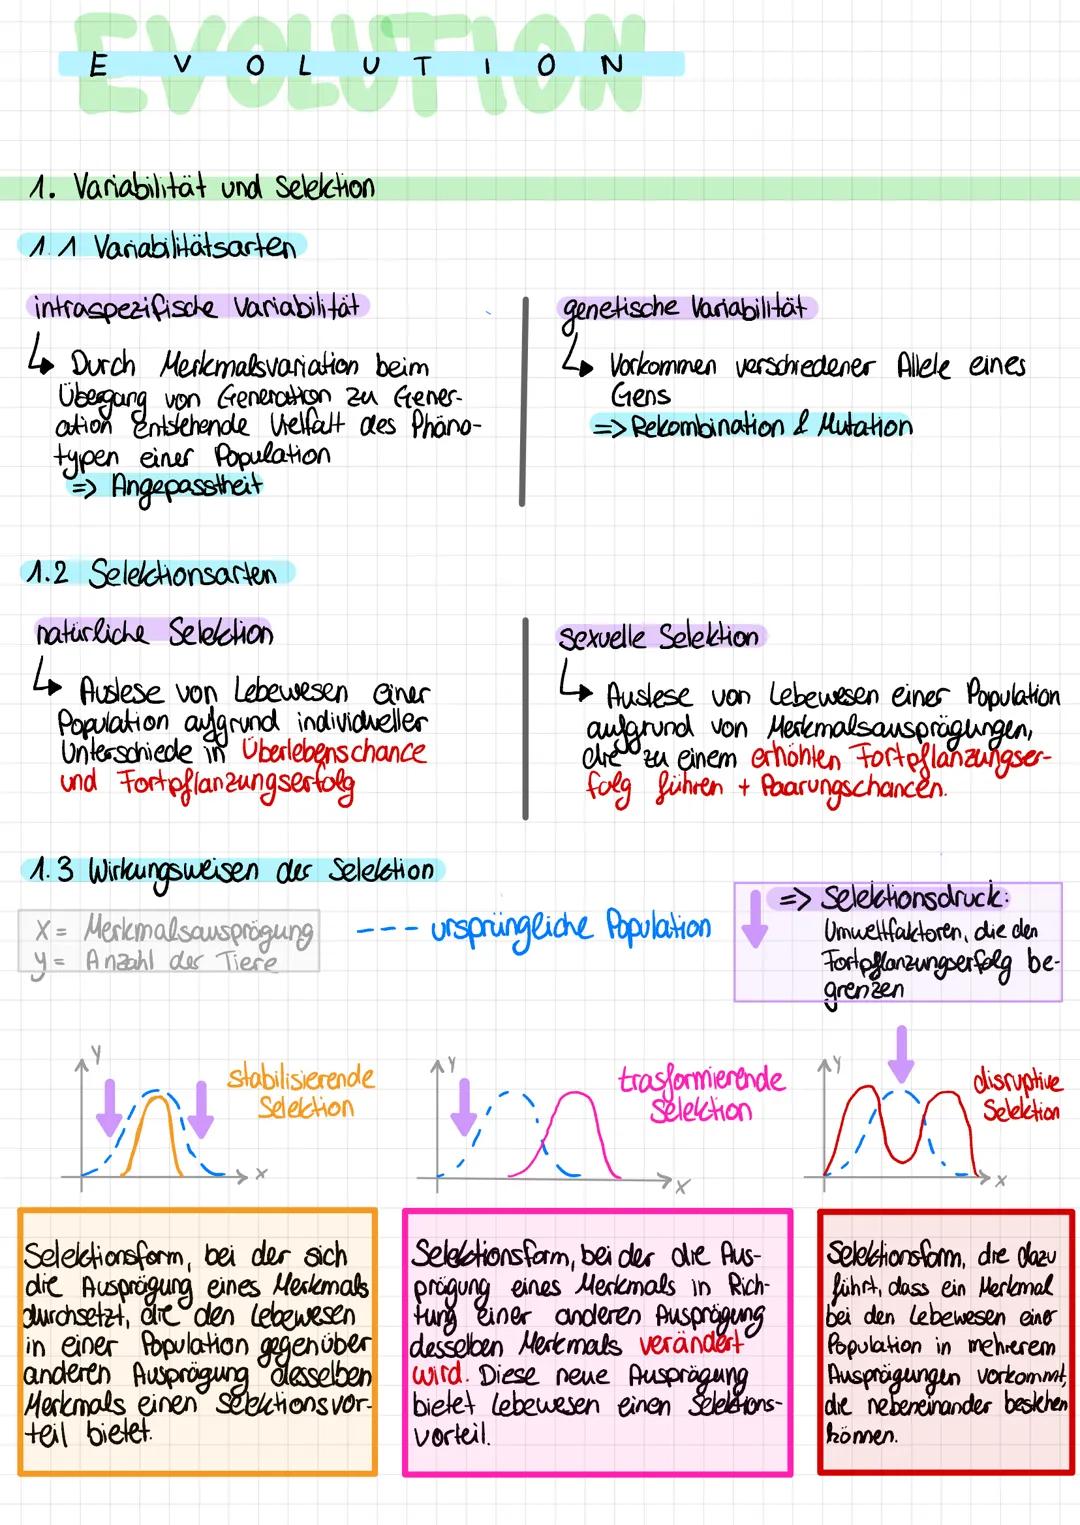 EVOLUTION
E V O L U T I O N
1. Variabilität und Selektion
1.1 Variabilitätsarten
intraspezifische Variabilität
↳ Durch Merkmalsvariation beim
Übergang von Generation zu Gener-
ation entstehende Vielfalt des Phäno-
typen einer Population
=> Angepasstheit
genetische Variabilität
↳ Vorkommen verschiedener Allele eines
Gens
=> Rekombination & Mutation
1.2 Selektionsarten
natürliche Selektion
↳ Auslese von Lebewesen einer
Population aufgrund individueller
Unterschiede in Überlebenschance
und Fortpflanzungserfolg
sexuelle Selektion
↳ Auslese von Lebewesen einer Population
aufgrund von Merkmalsausprägungen,
die zu einem erhöhten Fortpflanzungser-
folg führen + Paarungschancen.
1.3 Wirkungsweisen der Selektion
X = Merkmalsausprägung
y = Anzahl der Tiere
--- ursprüngliche Population
=> Selektionsdruck:
Umweltfaktoren, die den
Fortpflanzungserfolg be-
grenzen
Y
stabilisierende
Selektion
X
Y
trasformierende
Selektion
X
Y
disruptive
Selektion
X
Selektionsform, bei der sich
die Ausprägung eines Merkmals
durchsetzt, die den Lebewesen
in einer Population gegenüber
anderen Ausprägung desselben
Merkmals einen Selektionsvor-
teil bietet.
Selektionsform, bei der die Aus-
prägung eines Merkmals in Rich-
tung einer anderen Ausprägung
desselben Merkmals verändert
wird. Diese neue Ausprägung
bietet Lebewesen einen Selektions-
vorteil.
Selektionsform, die dazu
führt, dass ein Merkmal
bei den Lebewesen einer
Population in mehrerem
Ausprägungen vorkommt,
die nebeneinander bestehen
können.